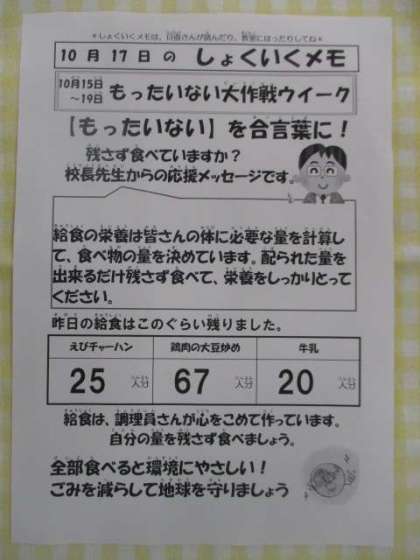 *しょくいくメモは、日直さんが読んだり、教室にはったりしてね*
10月17日の しょくいくメモ
10月15日
～19日 もったいない大作戦ウイーク
【もったいない】を合言葉に！
残さず食べていますか？
校長先生からの応援メッセージです。
給食の栄養は皆さんの体に必要な量を計算し
て、食べ物の量を決めています。配られた量を
出来るだけ残さず食べて、栄養をしっかりとって
ください。
昨日の給食はこのぐらい残りました。
えびチャーハン 鶏肉の大豆炒め 牛乳
25人分 67人分 20人分
給食は、調理員さんが心をこめて作っています。
自分の量を残さず食べましょう。
全部食べると環境にやさしい！
ごみを減らして地球を守りましょう